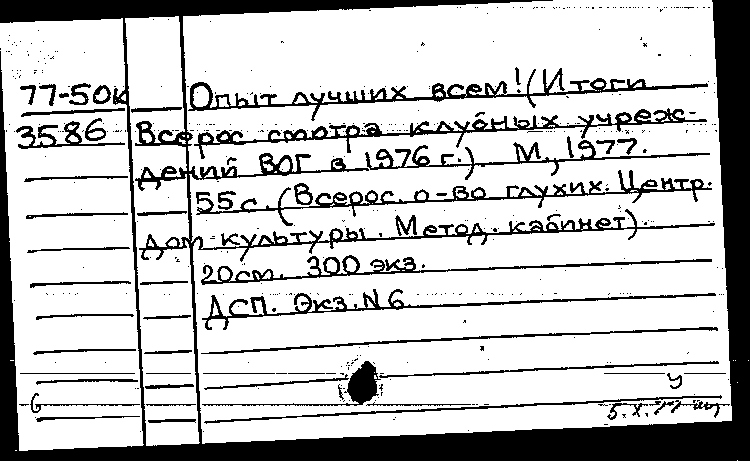 77-50к Опыт лучших всем! (Итоги
3586 Всерос. смотра клубных учреж-
дений ВОГ в 1976 г.). М., 1977.
55 с. (Всерос. о-во глухих. Центр.
дом культуры. Метод. кабинет).
20 см. 300 экз.
ДСП. Экз. N 6
у
6 5.X.77